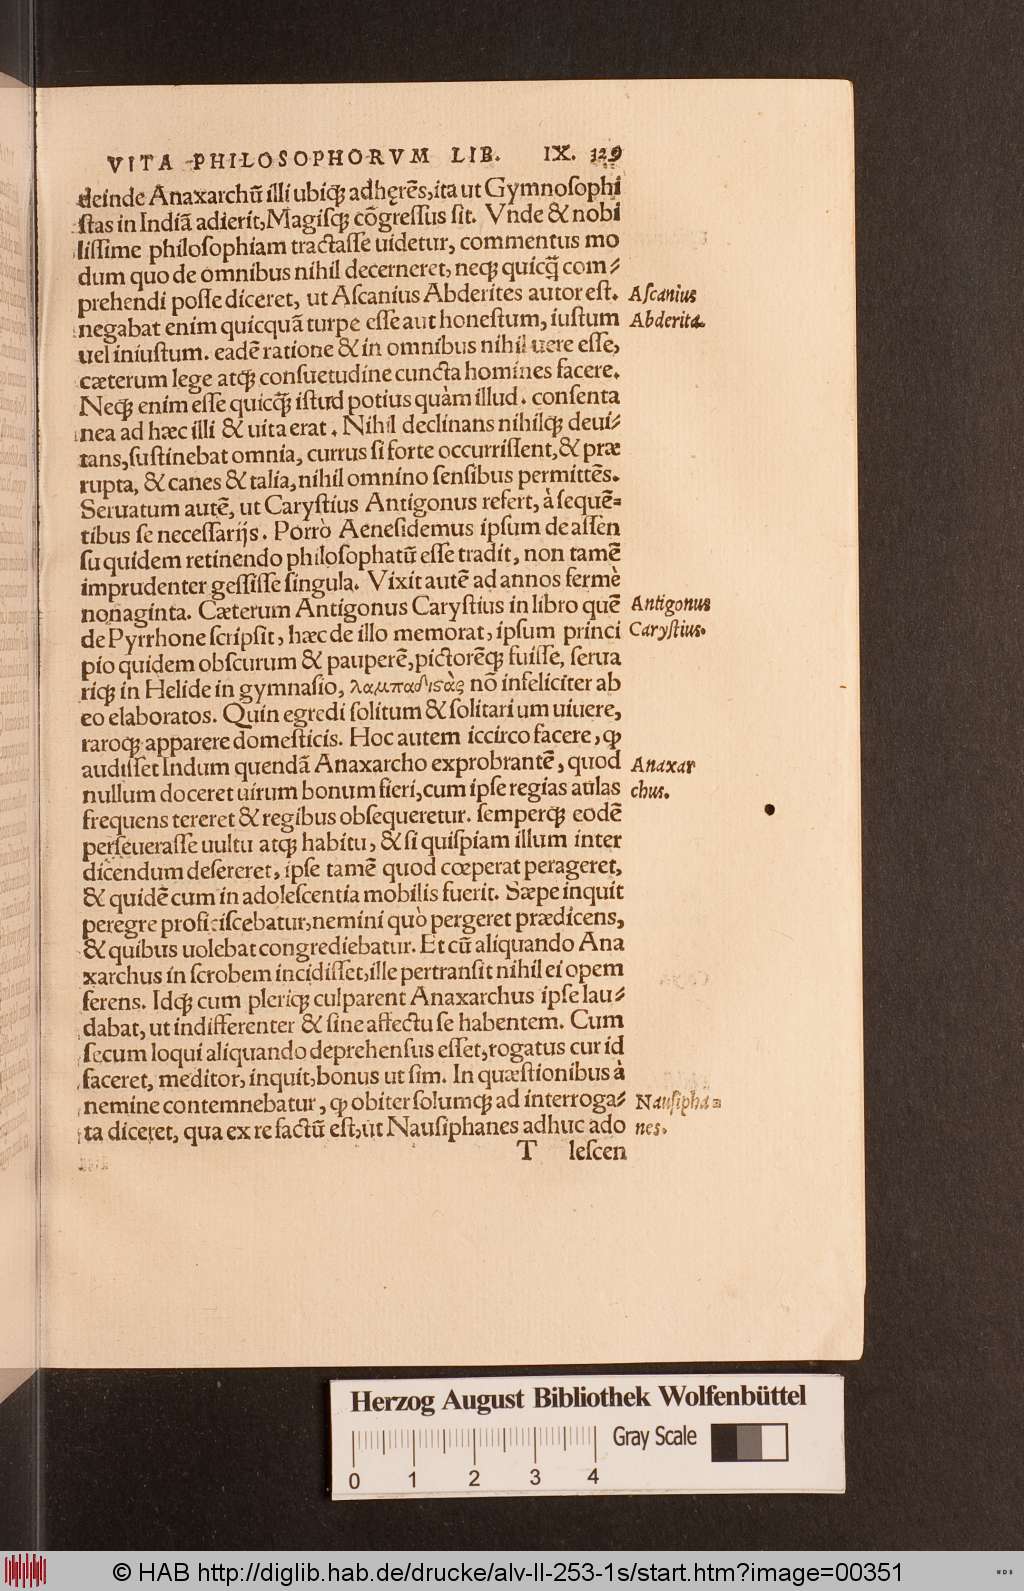 VITA PHILOSOPHORVM LIB. IX. 329
deinde Anaxarchũ illi ubiq; adhęrẽs, ita ut Gymnoſophi
ſtas in Indiã adierit, Magiſq; cõgreſſus ſit. Vnde & nobi
liſſime philoſophiam tractaſſe uidetur, commentus mo
dum quo de omnibus nihil decerneret, neq; quicq̃ com⸗
prehendi poſſe diceret, ut Aſcanius Abderites autor eſt. Aſcanius
negabat enim quicquã turpe eſſe aut honeſtum, iuſtum Abderita.
uel iniuſtum. eadẽ ratione & in omnibus nihil uere eſſe,
cæterum lege atq; conſuetudine cuncta homines facere.
Neq; enim eſſe quicq̃ iſtud potius quàm illud. conſenta
nea ad hæc illi & uita erat. Nihil declinans nihilq; deui⸗
tans, ſuſtinebat omnia, currus ſi forte occurriſſent, & præ
rupta, & canes & talia, nihil omnino ſenſibus permittẽs.
Seruatum autẽ, ut Caryſtius Antigonus refert, à ſequẽ⸗
tibus ſe neceſſarijs. Porrò Aeneſidemus ipſum de aſſen
ſu quidem retinendo philoſophatũ eſſe tradit, non tamẽ
imprudenter geſſiſſe ſingula. Vixit autẽ ad annos fermè
nonaginta. Cæterum Antigonus Caryſtius in libro quẽ Antigonus
de Pyrrhone ſcripſit, hæc de illo memorat, ipſum princi Caryſtius.
pio quidem obſcurum & pauperẽ, pictorẽq; fuiſſe, ſerua
riq; in Helide in gymnaſio, λαμπαδιϛὰς nõ infeliciter ab
eo elaboratos. Quin egredi ſolitum & ſolitarium uiuere,
raroq; apparere domeſticis. Hoc autem iccirco facere, ꝙ
audiſſet Indum quendã Anaxarcho exprobrantẽ, quod Anaxar
nullum doceret uirum bonum fieri, cum ipſe regias aulas chus.
frequens tereret & regibus obſequeretur. ſemperq; eodẽ
perſeueraſſe uultu atq; habitu, & ſi quiſpiam illum inter
dicendum deſereret, ipſe tamẽ quod cœperat perageret,
& quidẽ cum in adoleſcentia mobilis fuerit. Sæpe inquit
peregre proficiſcebatur, nemini quò pergeret prædicens,
& quibus uolebat congrediebatur. Et cũ aliquando Ana
xarchus in ſcrobem incidiſſet, ille pertranſit nihil ei opem
ferens. Idq; cum pleriq; culparent Anaxarchus ipſe lau⸗
dabat, ut indifferenter & ſine affectu ſe habentem. Cum
ſecum loqui aliquando deprehenſus eſſet, rogatus cur id
faceret, meditor, inquit, bonus ut ſim. In quæſtionibus à
nemine contemnebatur, ꝙ obiter ſolumq; ad interroga⸗ Nauſipha⸗
ta diceret, qua ex re factũ eſt, ut Nauſiphanes adhuc ado nes.
T leſcen
Herzog August Bibliothek Wolfenbüttel
Gray Scale
0 1 2 3 4
© HAB http://diglib.hab.de/drucke/alv-ll-253-1s/start.htm?image=00351